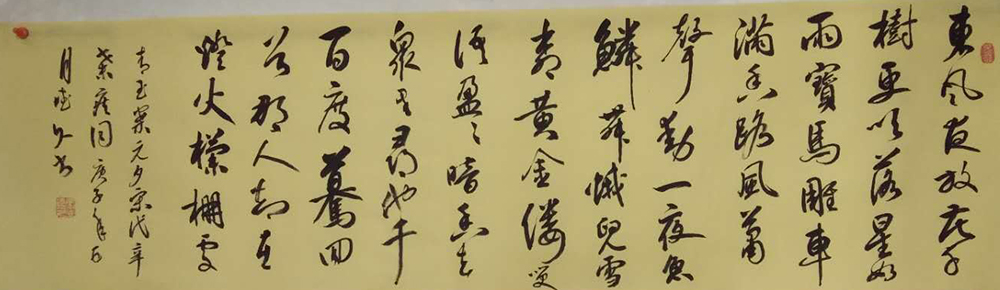 東風夜放花千
樹更吹落星如
雨寶馬雕車
滿香路風蕭
聲動一夜魚
鱗舞蛾兒雪
柳黃金縷笑
語盈〻暗香去
眾里尋他千
百度驀回
首那人却在
燈火欄柵處
青玉案元夕宋代辛
棄疾詞庚子年
月書